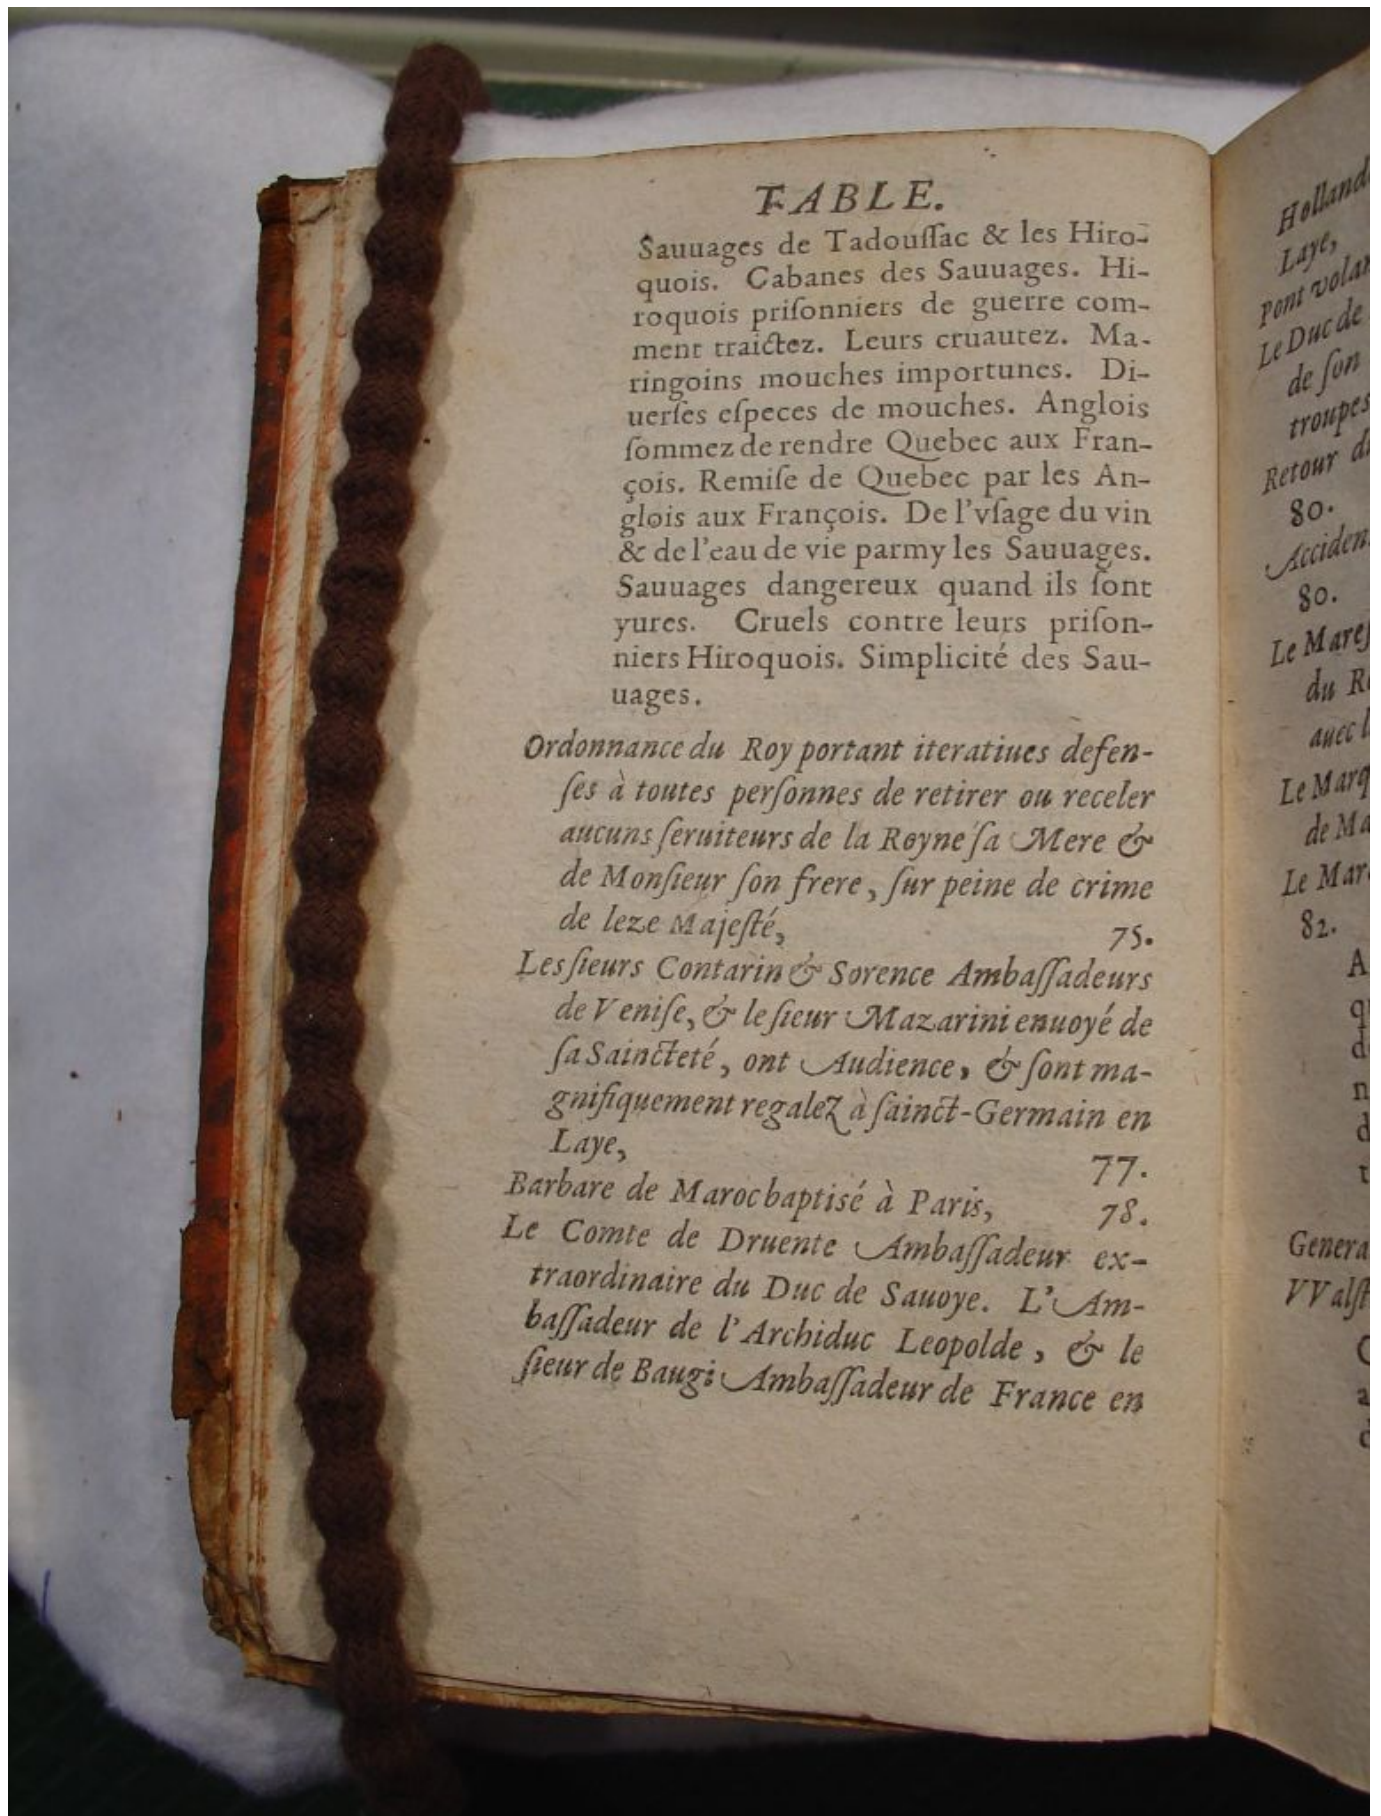 TABLE.
Sauuages de Tadouſſac & les Hiro-
quois. Cabanes des Sauuages. Hi-
roquois priſonniers de guerre com-
ment traictez. Leurs cruautez. Ma-
ringoins mouches importunes. Di-
uerſes eſpeces de mouches. Anglois
ſommez de rendre Quebec aux Fran-
çois. Remiſe de Quebec par les An-
glois aux François. De l'vſage du vin
& de l'eau de vie parmy les Sauuages.
Sauuages dangereux quand ils ſont
yures. Cruels contre leurs priſon-
niers Hiroquois. Simplicité des Sau-
uages.
Ordonnance du Roy portant iteratiues defen-
ſes à toutes perſonnes de retirer ou receler
aucuns ſeruiteurs de la Royne ſa Mere &
de Monſieur ſon frere, ſur peine de crime
de leze Majeſté, 75.
Les ſieurs Contarin & Sorence Ambaſſadeurs
de Veniſe, & le ſieur Mazarini enuoyé de
ſa Saincteté, ont Audience, & ſont ma-
gnifiquement regalez à ſainct-Germain en
Laye, 77.
Barbare de Maroc baptisé à Paris, 78.
Le Comte de Druente Ambaſſadeur ex-
traordinaire du Duc de Sauoye. L'Am-
baſſadeur de l'Archiduc Leopolde, & le
ſieur de Baugi Ambaſſadeur de France en
Laye,
Pont
Le Duc de
de ſon
troupes
Retour
80.
80.
Le
du
Le
de
Le
82.